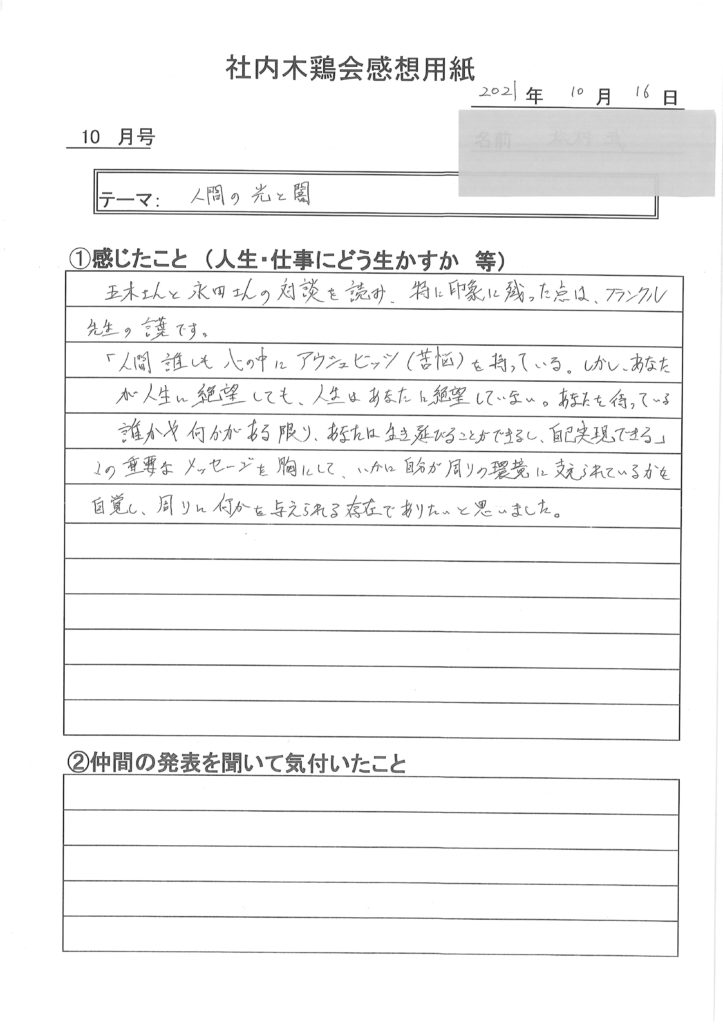 社内木鶏会感想用紙
2021 年 10 月 16 日
10 月号
名前
テーマ： 人間の光と闇
①感じたこと （人生・仕事にどう生かすか 等）
五木さんと永田さんの対談を読み、特に印象に残った点は、フランクル
先生の です。
「人間誰しも心の中にアウシュビッツ（苦悩）を持っている。しかし、あなた
が人生に絶望しても、人生はあなたに絶望していない。あなたを待っている
誰かや何かがある限り、あなたは生き延びることができるし、自己実現できる」
この重要なメッセージを胸にして、いかに自分が周りの環境に支えられているかを
自覚し、周りに何かを与えられる存在でありたいと思いました。
②仲間の発表を聞いて気付いたこと